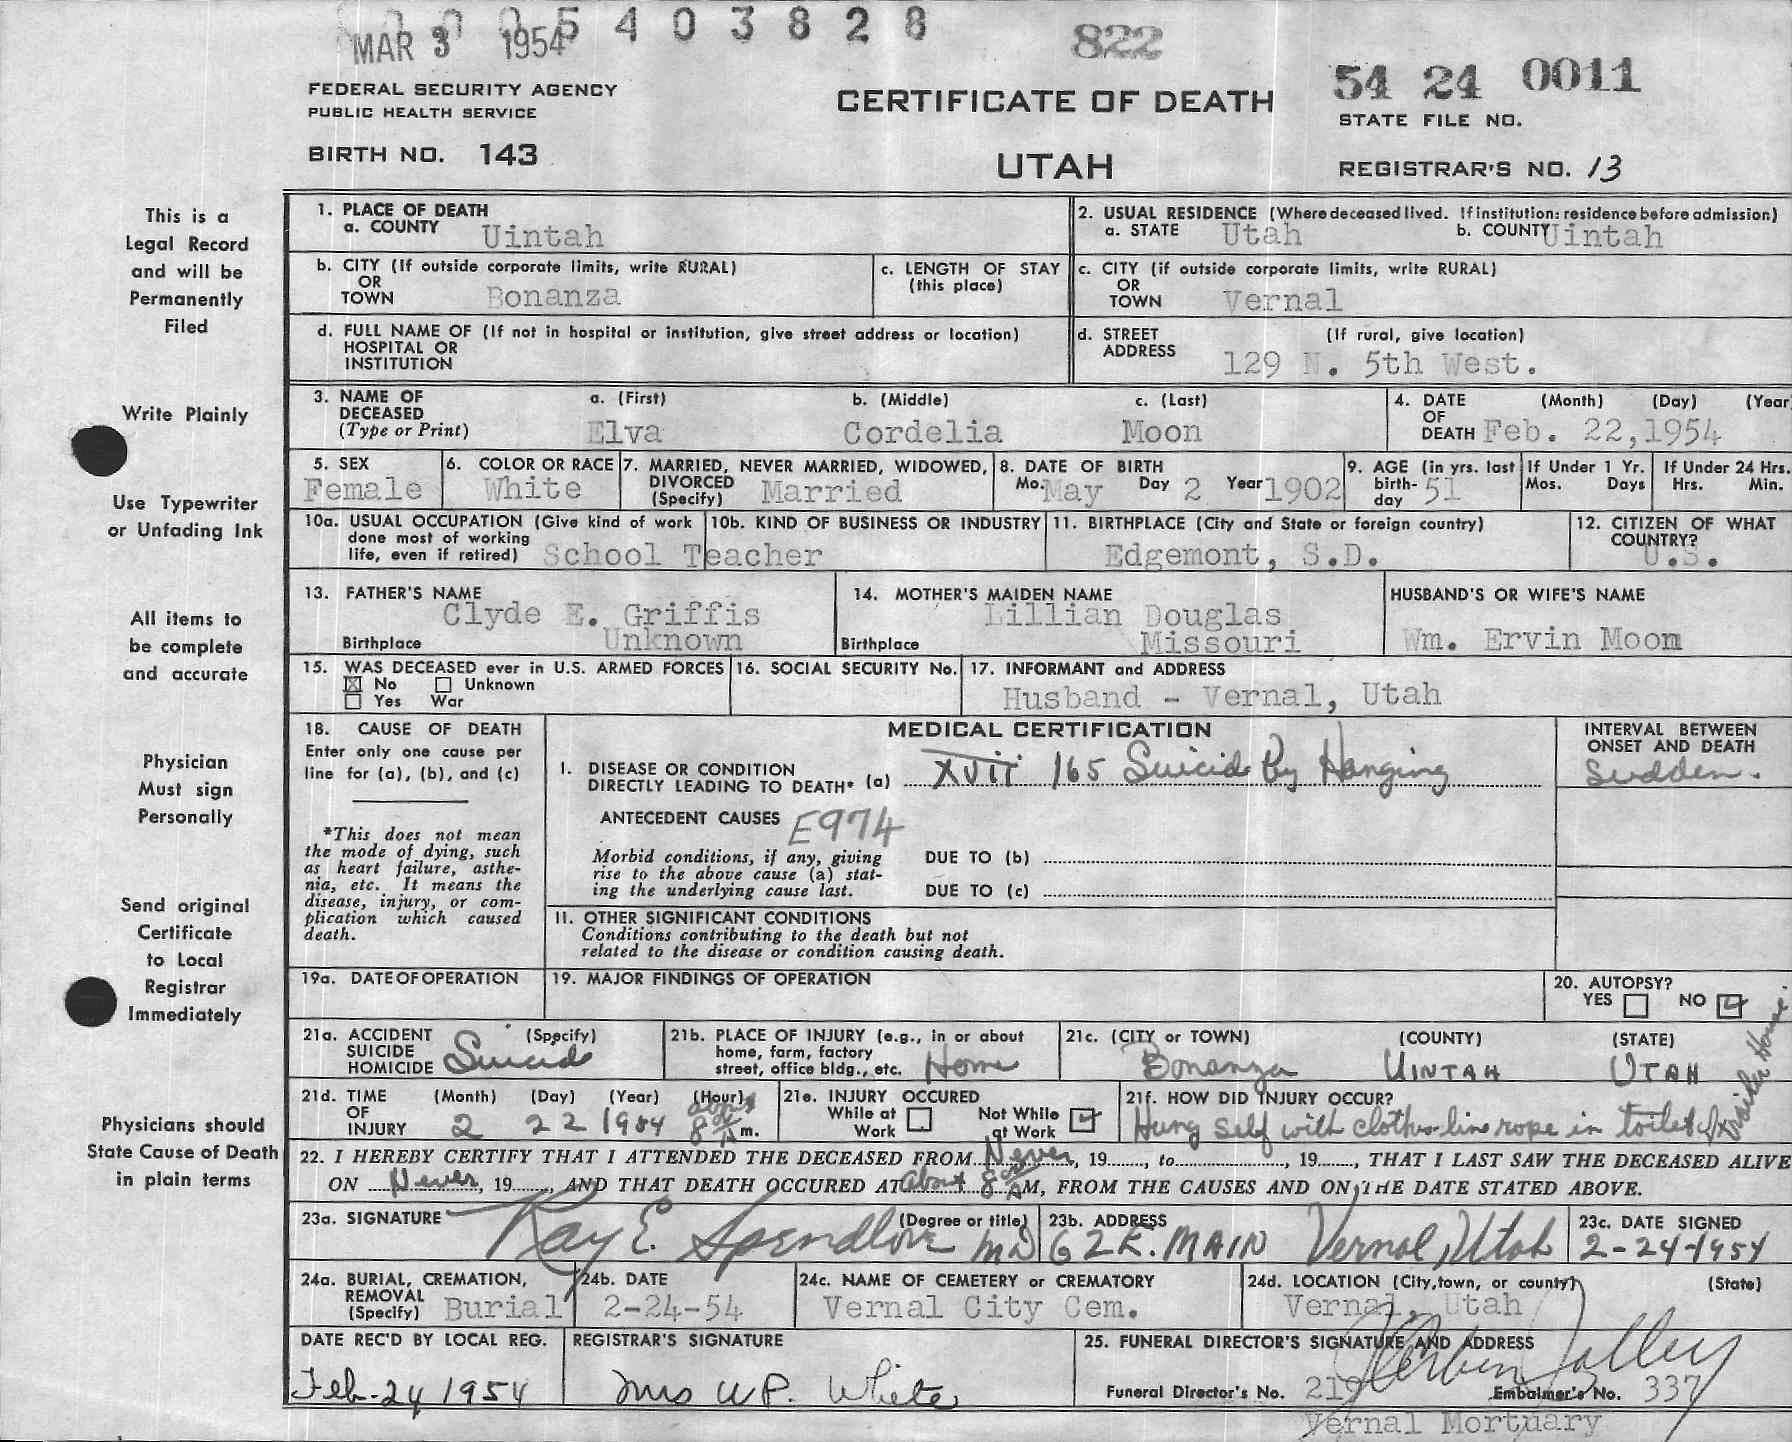 0 0 0 5 4 0 3 8 2 8
MAR 3 1954
822
FEDERAL SECURITY AGENCY
PUBLIC HEALTH SERVICE
CERTIFICATE OF DEATH
54 24 0011
STATE FILE NO.
BIRTH NO. 143
UTAH
REGISTRAR'S NO. 13
This is a
Legal Record
and will be
Permanently
Filed
Write Plainly
Use Typewriter
or Unfading Ink
All items to
be complete
and accurate
Physician
Must sign
Personally
Send original
Certificate
to Local
Registrar
Immediately
Physicians should
State Cause of Death
in plain terms
1. PLACE OF DEATH
a. COUNTY Uintah
2. USUAL RESIDENCE (Where deceased lived. If institution: residence before admission)
a. STATE Utah b. COUNTY Uintah
b. CITY (If outside corporate limits, write RURAL)
OR
TOWN Bonanza
c. LENGTH OF STAY
(this place)
c. CITY (if outside corporate limits, write RURAL)
OR
TOWN Vernal
d. FULL NAME OF (If not in hospital or institution, give street address or location)
HOSPITAL OR
INSTITUTION
d. STREET (If rural, give location)
ADDRESS 129 N. 5th West.
3. NAME OF
DECEASED
(Type or Print)
a. (First) b. (Middle) c. (Last)
Elva Cordelia Moon
4. DATE (Month) (Day) (Year
OF
DEATH Feb. 22,1954
5. SEX
Female
6. COLOR OR RACE
White
7. MARRIED, NEVER MARRIED, WIDOWED,
DIVORCED
(Specify) Married
8. DATE OF BIRTH
Mo. May Day 2 Year 1902
9. AGE (in yrs. last
birth-
day 51
If Under 1 Yr.
Mos. Days
If Under 24 Hrs.
Hrs. Min.
10a. USUAL OCCUPATION (Give kind of work
done most of working
life, even if retired) School Teacher
10b. KIND OF BUSINESS OR INDUSTRY
11. BIRTHPLACE (City and State or foreign country)
Edgemont, S.D.
12. CITIZEN OF WHAT
COUNTRY?
U.S.
13. FATHER'S NAME
Clyde E. Griffis
Birthplace Unknown
14. MOTHER'S MAIDEN NAME
Lillian Douglas
Birthplace Missouri
HUSBAND'S OR WIFE'S NAME
Wm. Ervin Moon
15. WAS DECEASED ever in U.S. ARMED FORCES
☒ No ☐ Unknown
☐ Yes War
16. SOCIAL SECURITY No.
17. INFORMANT and ADDRESS
Husband - Vernal, Utah
18. CAUSE OF DEATH
Enter only one cause per
line for (a), (b), and (c)
*This does not mean
the mode of dying, such
as heart failure, asthe-
nia, etc. It means the
disease, injury, or com-
plication which caused
death.
MEDICAL CERTIFICATION
I. DISEASE OR CONDITION
DIRECTLY LEADING TO DEATH* (a) XVII 165 Suicide By Hanging
ANTECEDENT CAUSES E974
Morbid conditions, if any, giving
rise to the above cause (a) stat-
ing the underlying cause last.
DUE TO (b)
DUE TO (c)
II. OTHER SIGNIFICANT CONDITIONS
Conditions contributing to the death but not
related to the disease or condition causing death.
INTERVAL BETWEEN
ONSET AND DEATH
Sudden.
19a. DATE OF OPERATION
19. MAJOR FINDINGS OF OPERATION
20. AUTOPSY?
YES ☐ NO ☑
21a. ACCIDENT (Specify)
SUICIDE
HOMICIDE Suicide
21b. PLACE OF INJURY (e.g., in or about
home, farm, factory
street, office bldg., etc. Home
21c. (CITY or TOWN) (COUNTY) (STATE)
Bonanza UINTAH UTAH
21d. TIME (Month) (Day) (Year) (Hour)
OF
INJURY 2 22 1954 about 8 00 A m.
21e. INJURY OCCURED
While at Work ☐ Not While at Work ☑
21f. HOW DID INJURY OCCUR?
Hung self with clothes line rope in toilet Home.
22. I HEREBY CERTIFY THAT I ATTENDED THE DECEASED FROM Never, 19......, to......, 19......, THAT I LAST SAW THE DECEASED ALIVE
ON Never, 19......, AND THAT DEATH OCCURED AT about 8 00 AM, FROM THE CAUSES AND ON THE DATE STATED ABOVE.
23a. SIGNATURE (Degree or title)
Ray E. Spendlove MD
23b. ADDRESS
62 E. MAIN Vernal, Utah
23c. DATE SIGNED
2-24-1954
24a. BURIAL, CREMATION,
REMOVAL
(Specify) Burial
24b. DATE
2-24-54
24c. NAME OF CEMETERY or CREMATORY
Vernal City Cem.
24d. LOCATION (City, town, or county) (State)
Vernal, Utah
DATE REC'D BY LOCAL REG.
Feb-24 1954
REGISTRAR'S SIGNATURE
Mrs W P. White
25. FUNERAL DIRECTOR'S SIGNATURE AND ADDRESS
Funeral Director's No. 219 Embalmer's No. 337
Vernal Mortuary